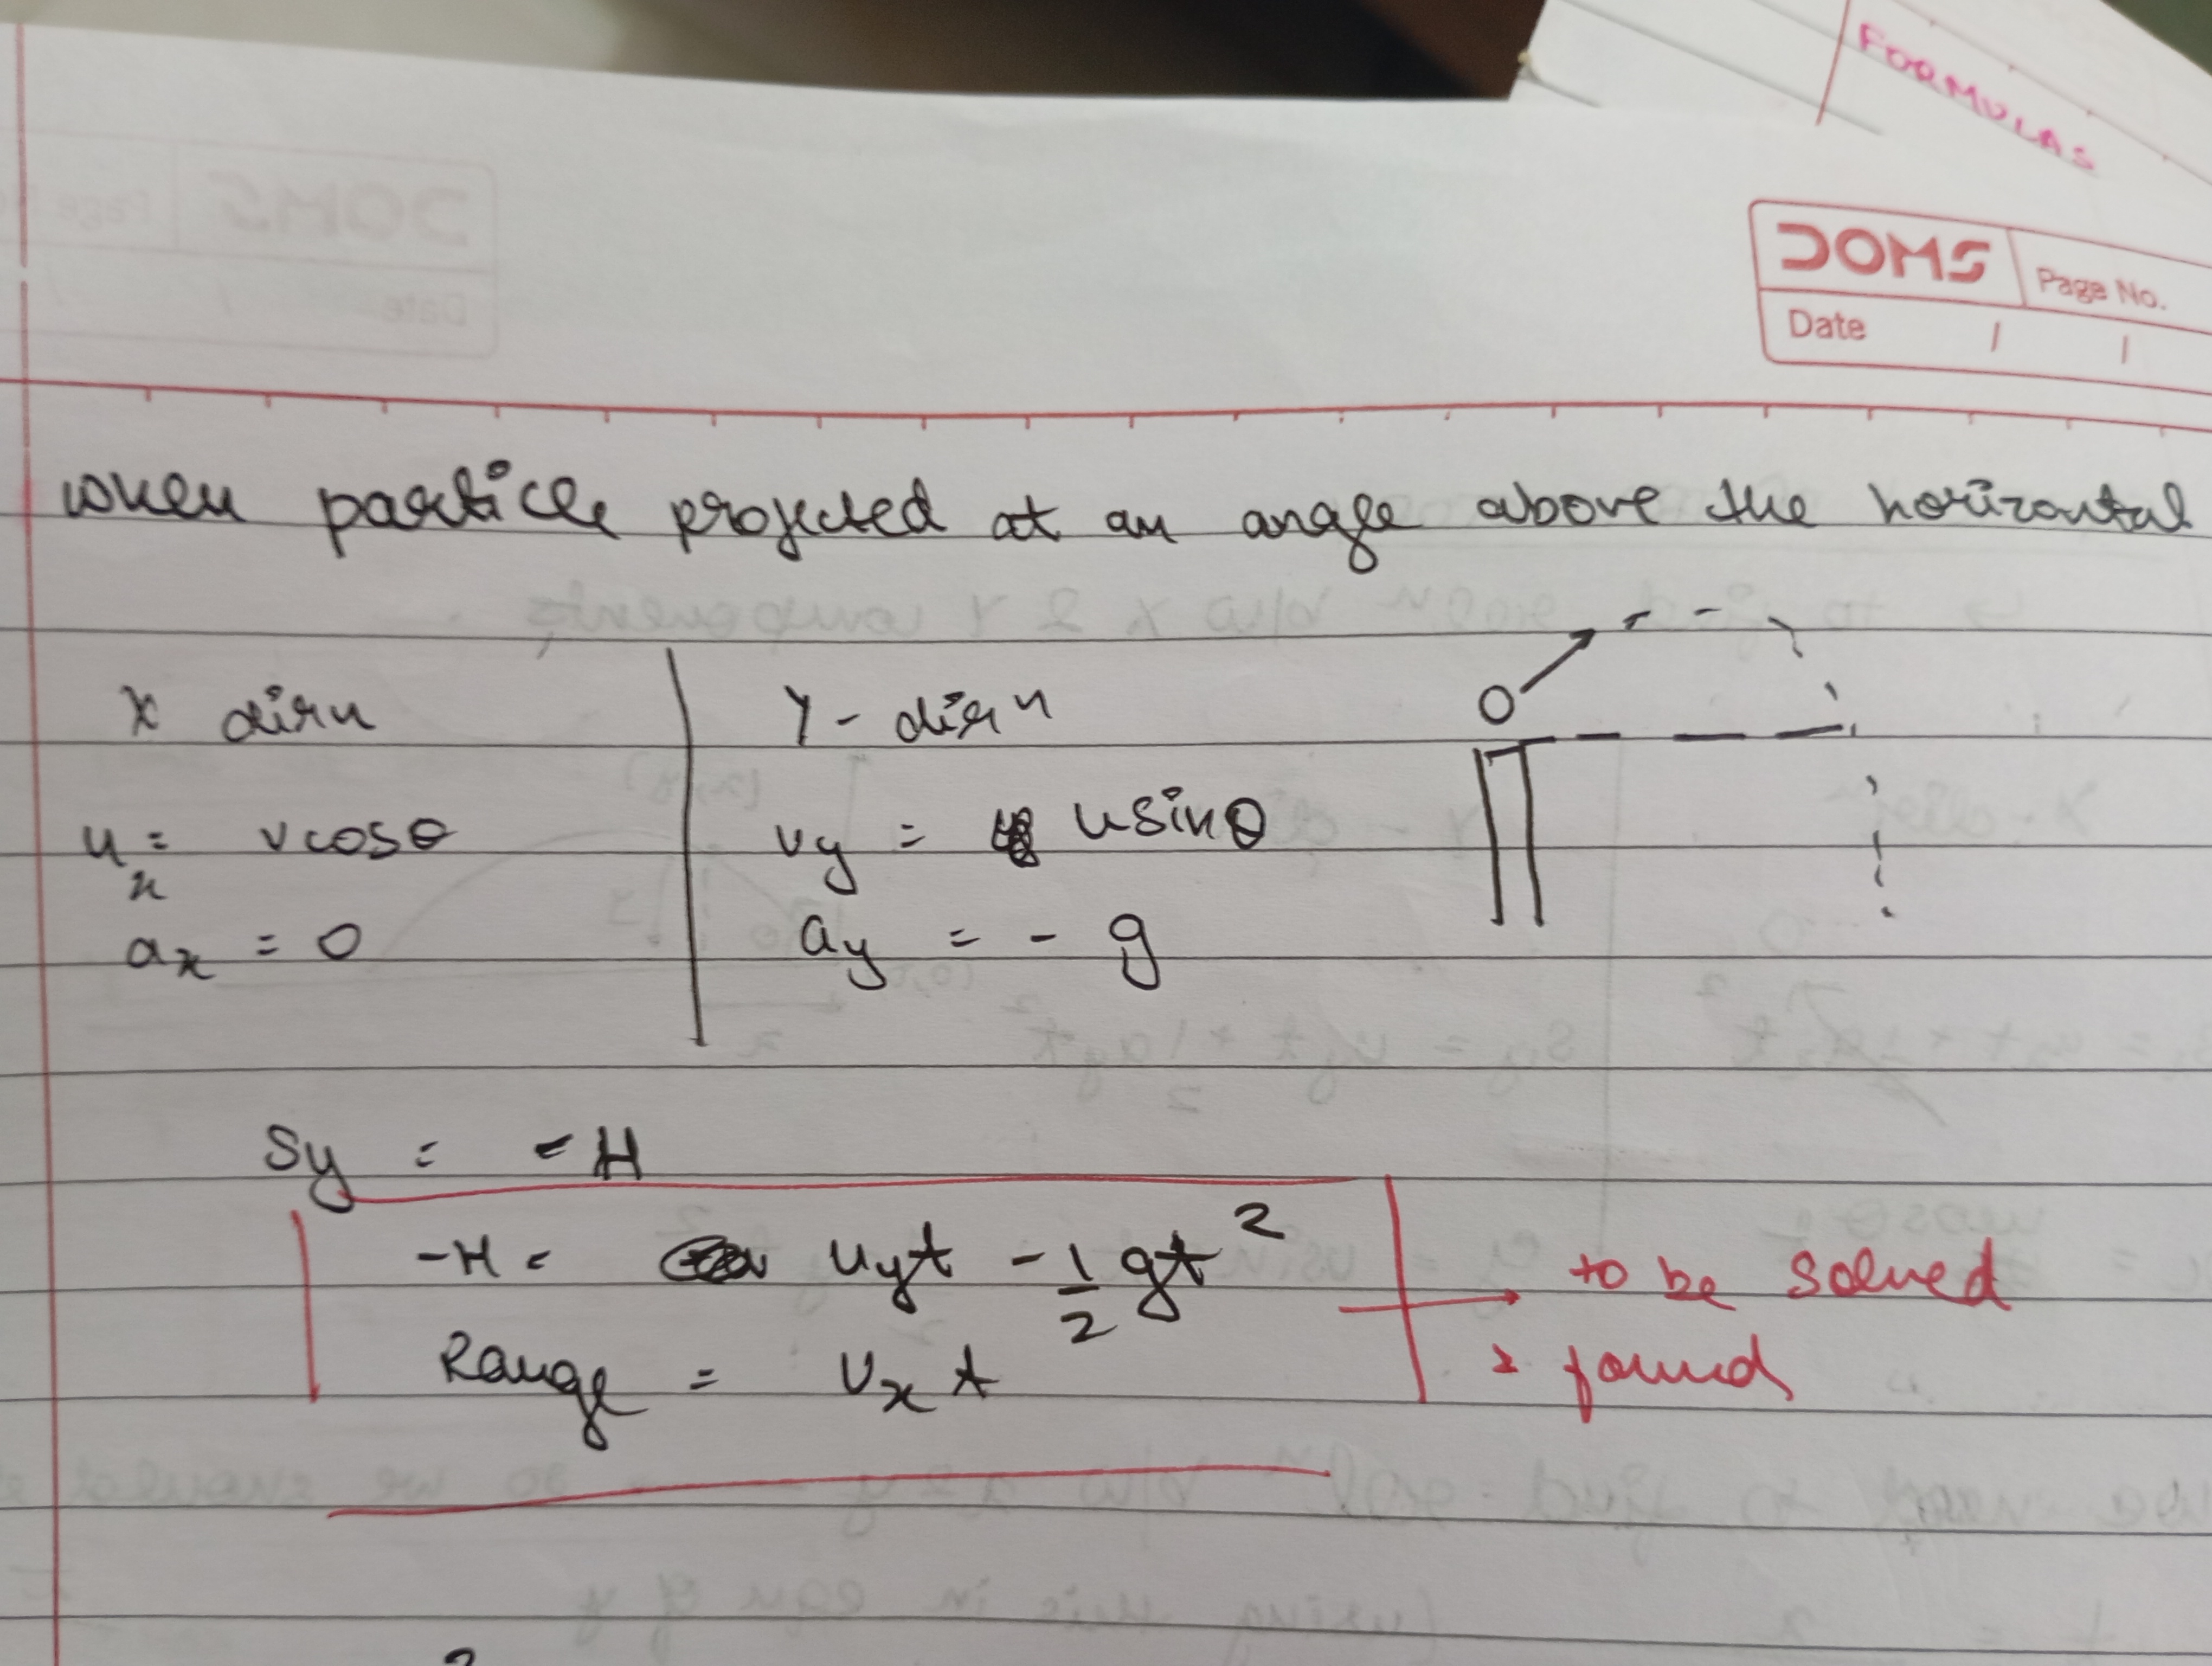 FORMULAS
DOMS Page No.
Date / /
when particle projected at an angle above the horizontal
X dirn
Y - dirn
u_x = vcosθ
vy = usinθ
a_x = 0
ay = - g
Sy = - H
-H = uyt - 1/2 gt²
Range = U_x t
to be solved
& found